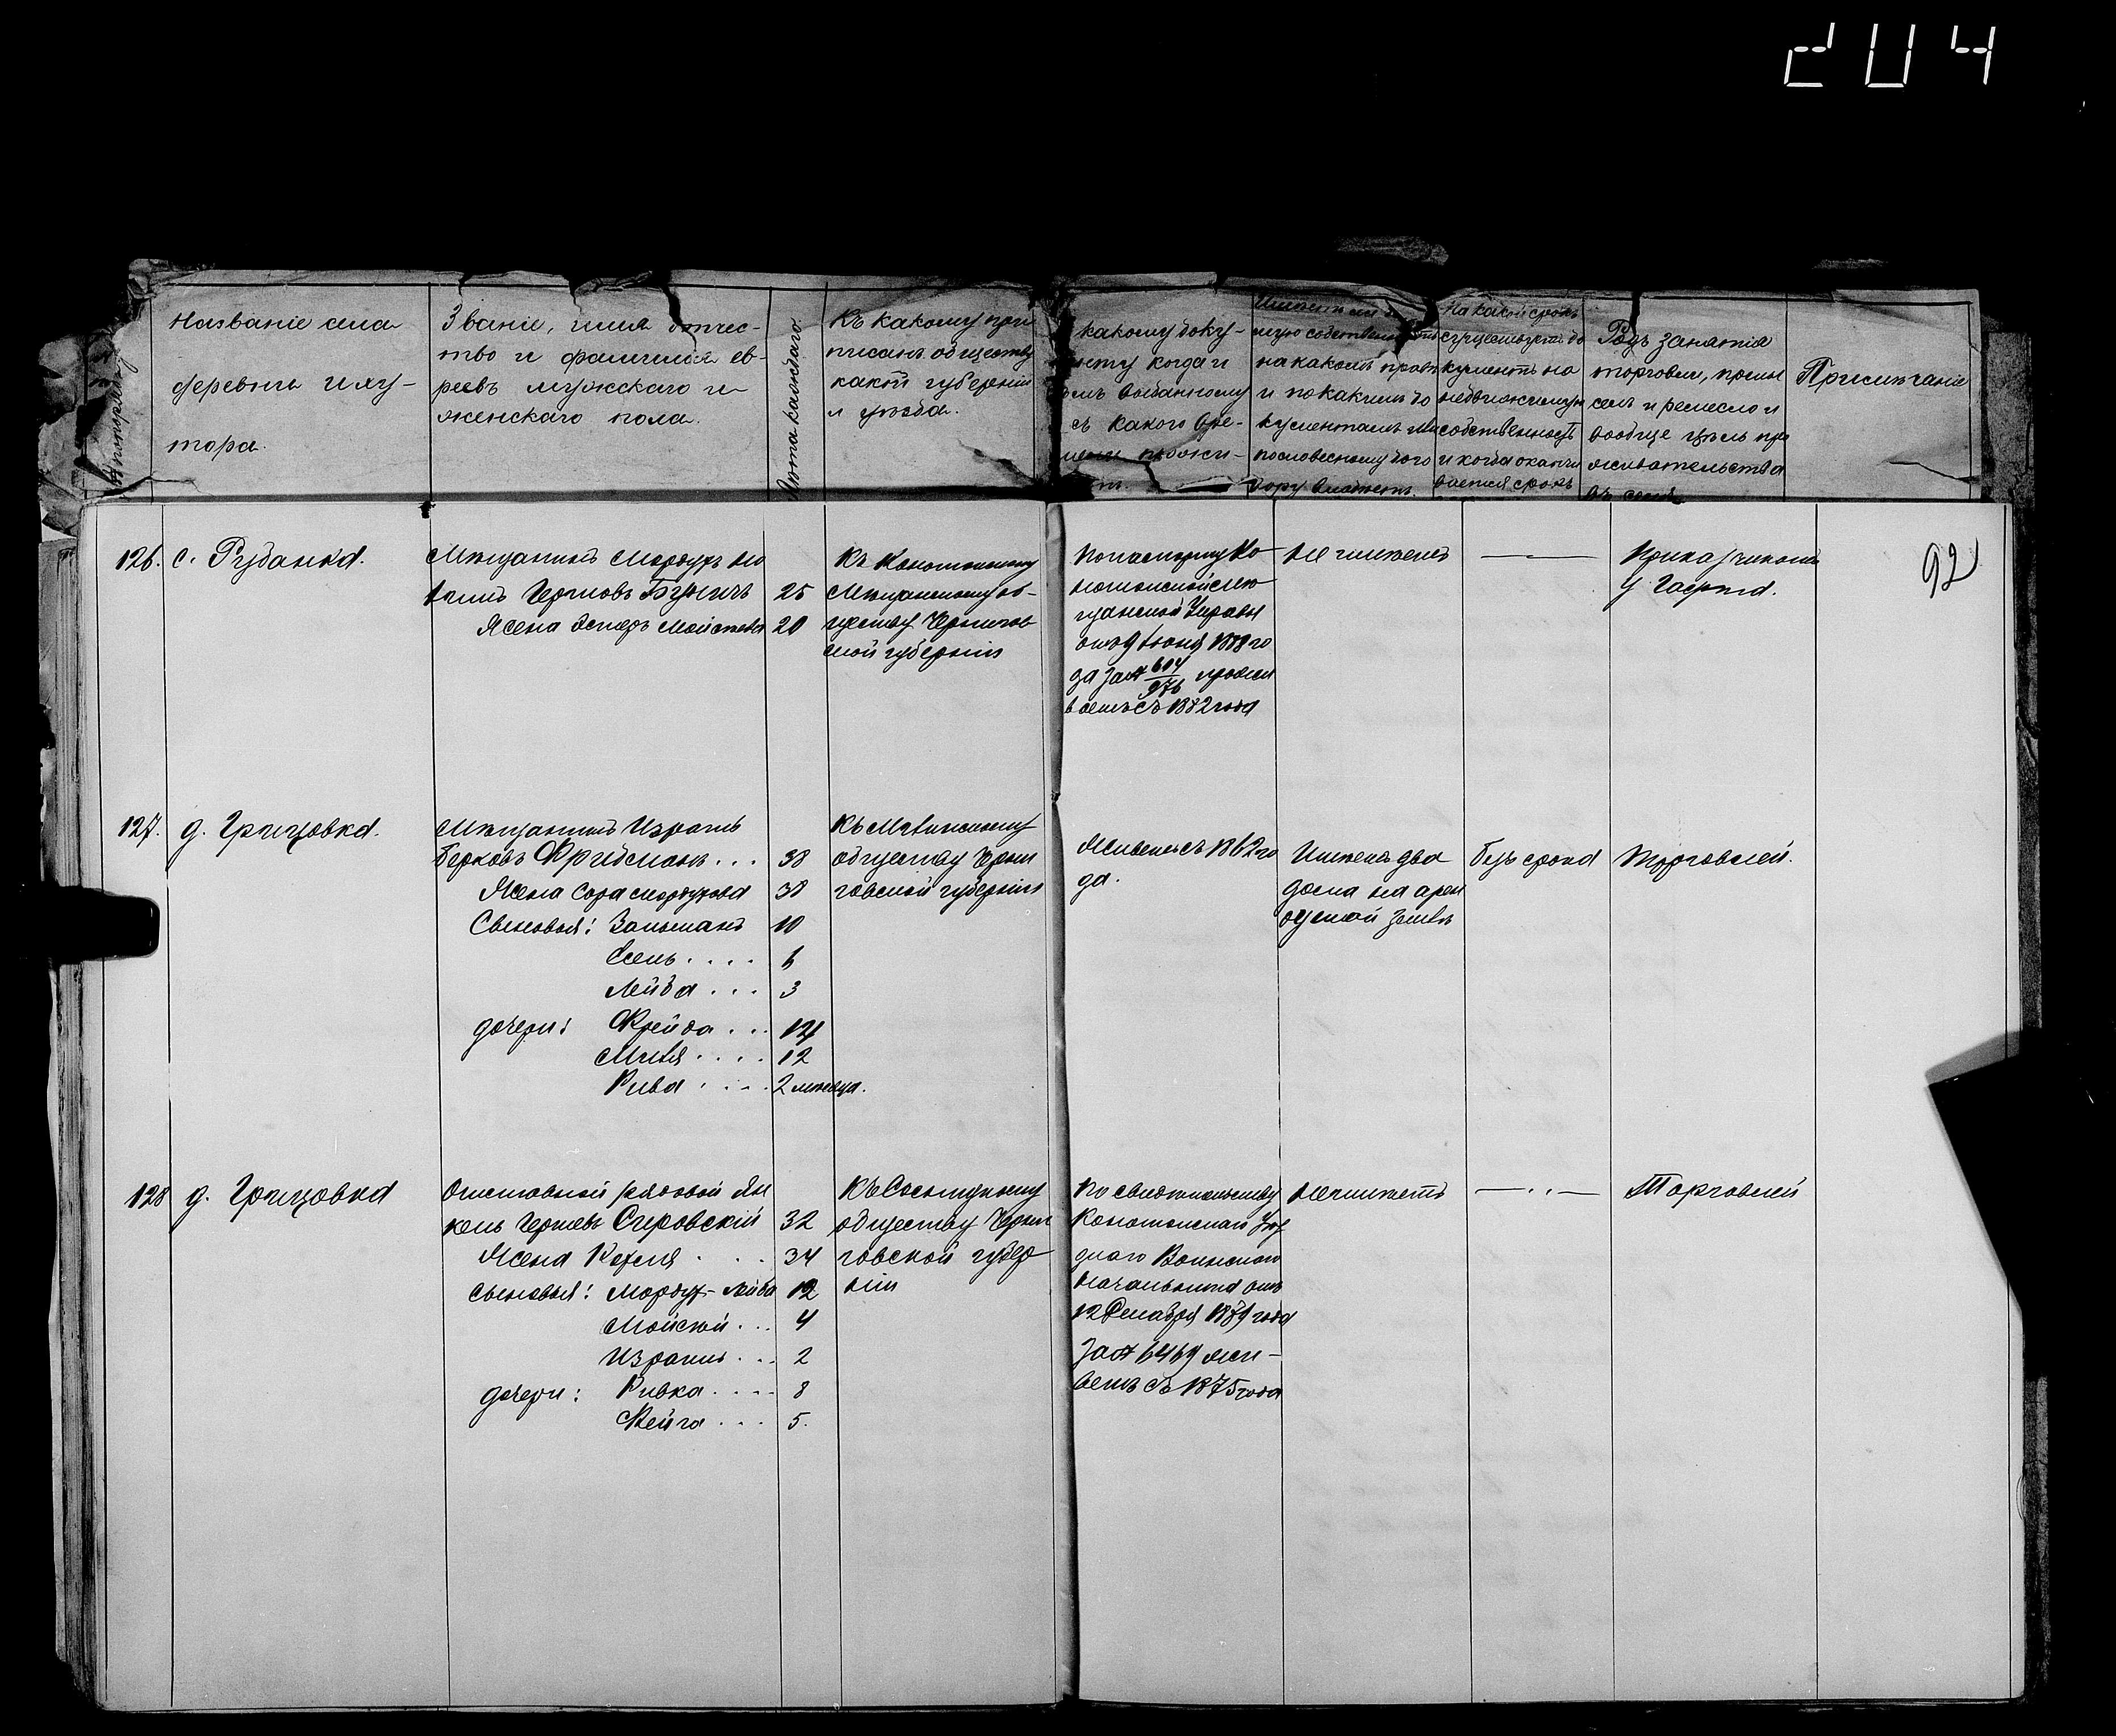 204
Названіе села
деревни и ху-
тора.
Званіе, имя отчес-
тво и фамилія ев-
реевъ мужского и
женскаго пола.
Лѣта каждаго.
Къ какому при
писанъ обществу
какой губерніи
и уѣзда.
какому доку-
менту когда и
кѣмъ выданному
съ какого вре-
мени прожи-
на какомъ правѣ
и по какимъ до
кументамъ или
пословесному дого
вору владѣетъ.
На какой срокъ
существуетъ до
кументъ на
недвижимую
собственность
и когда оканчи
вается срокъ
Родъ занятія
торговля, промы
селъ и ремесло и
вообще цѣль про
живательства
въ селѣ
Примѣчаніе
92
126. с. Рубанка.
Мѣщанинъ Мордухъ
25
Жена Эстеръ Мойсеева 20
Къ Конотопскому
Мѣщанскому об-
ществу Чернигов
ской губерніи
По паспорту Ко
нотопской Мѣ
щанской Управы
отъ 9 Іюня 1888 го
да за № 614/976 прожи
ваетъ съ 1882 года
Не имѣетъ
—
Прикащикомъ
127. д. Грицовка.
Мѣщанинъ Израиль
Берковъ Фридманъ... 38
Жена Сора Мордухова 38
Сыновья: Залманъ 10
6
Лейба... 3
дочери: Фрейда... 14
12
Рива.... 2 мѣсяца.
обществу Черни
говской губерніи
Живетъ съ 1862 го
да.
Имѣетъ два
дома на арен
дуемой землѣ
безъ срока
Торговлей.
128 д. Грицовка
Отставной рядовой Ян
кель Сировскій 32
Жена 34
сыновья: Мордух-Лейба 12
Мойсей... 4
Израиль... 2
дочери: Ривка.... 8
Фейга... 5.
Къ Сосницкому
обществу Черни
говской губер
ніи
По свидѣтельству
Конотопскаго Уѣз
днаго Воинскаго
Начальника отъ
12 Декабря 1881 года
за № 6469 жи-
ветъ съ 1875 года
Не имѣетъ
—..—
Торговлей